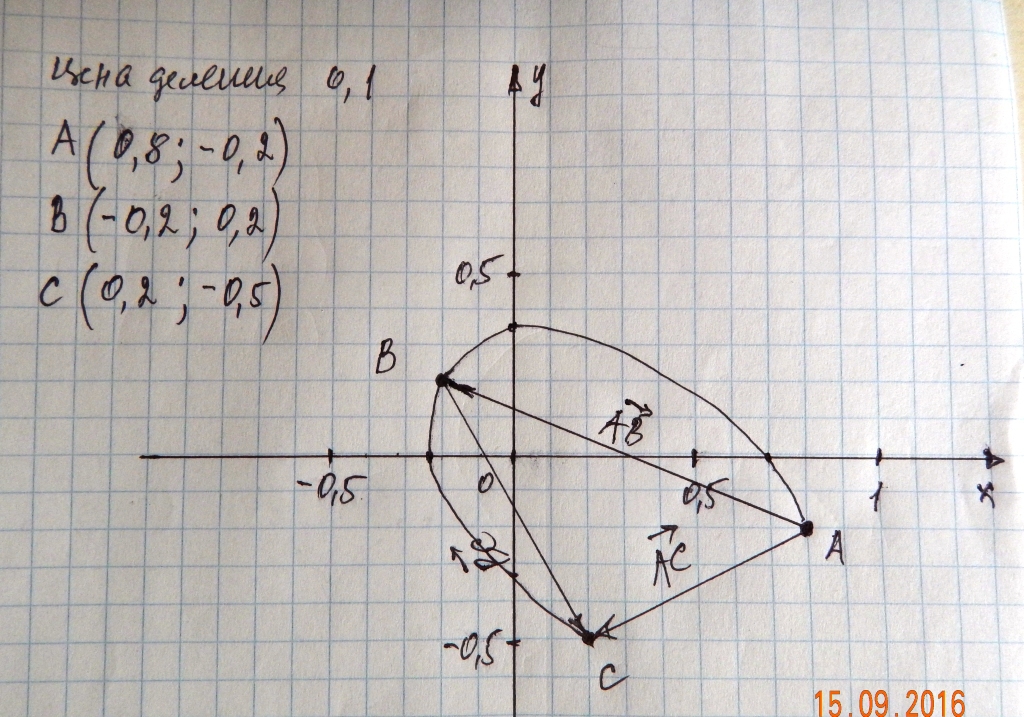 Цена деления 0,1
y
A (0,8; -0,2)
B (-0,2; 0,2)
C (0,2; -0,5)
0,5
B
AB
-0,5
0
0,5
1
x
A
AC
-0,5
C
15.09.2016